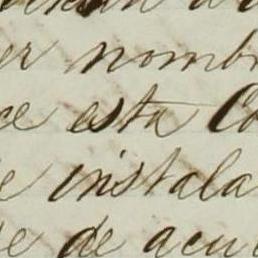 er nombr
ce esta Co
e instala
se de acu